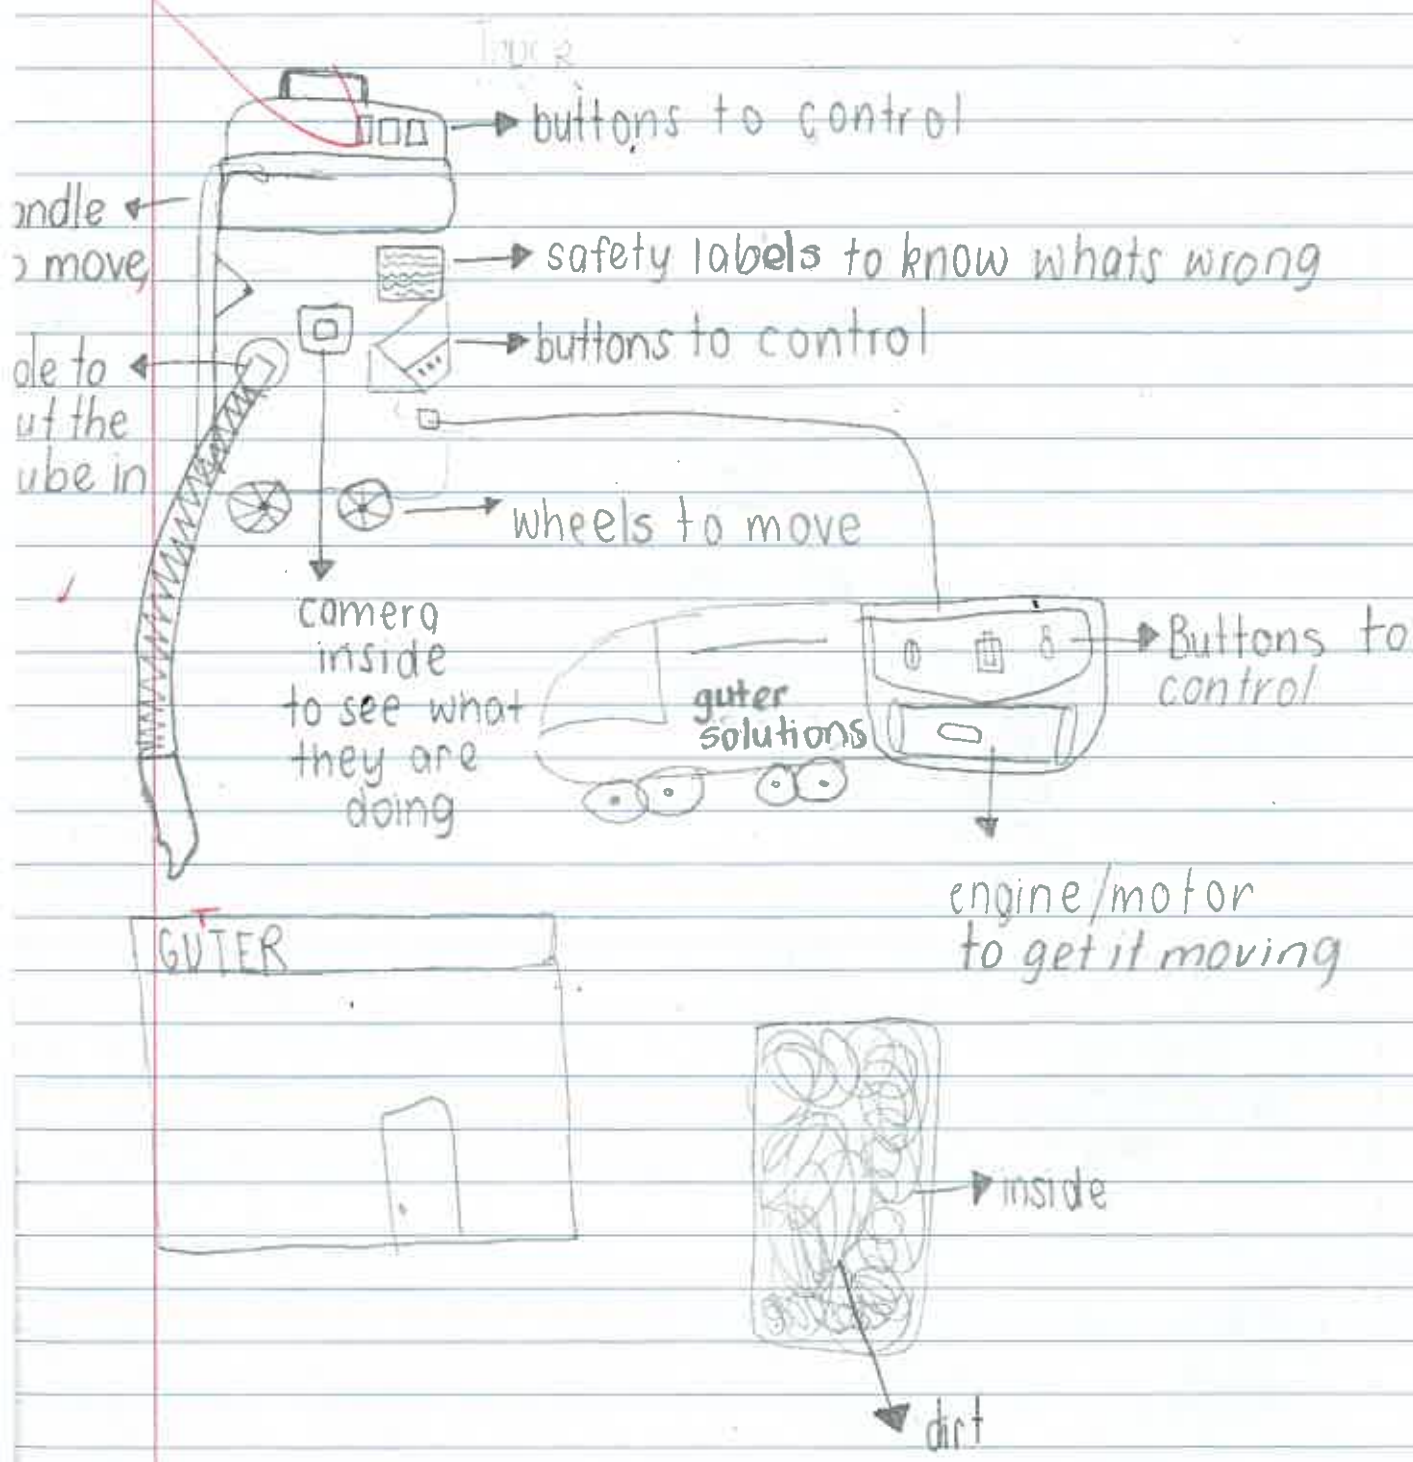 buttons to control
ndle
move
safety labels to know whats wrong
buttons to control
ole to
ut the
ube in
wheels to move
camera
inside
to see what
they are
doing
guter
solutions
Buttons to
control
engine/motor
to get it moving
T
GUTER
inside
dirt